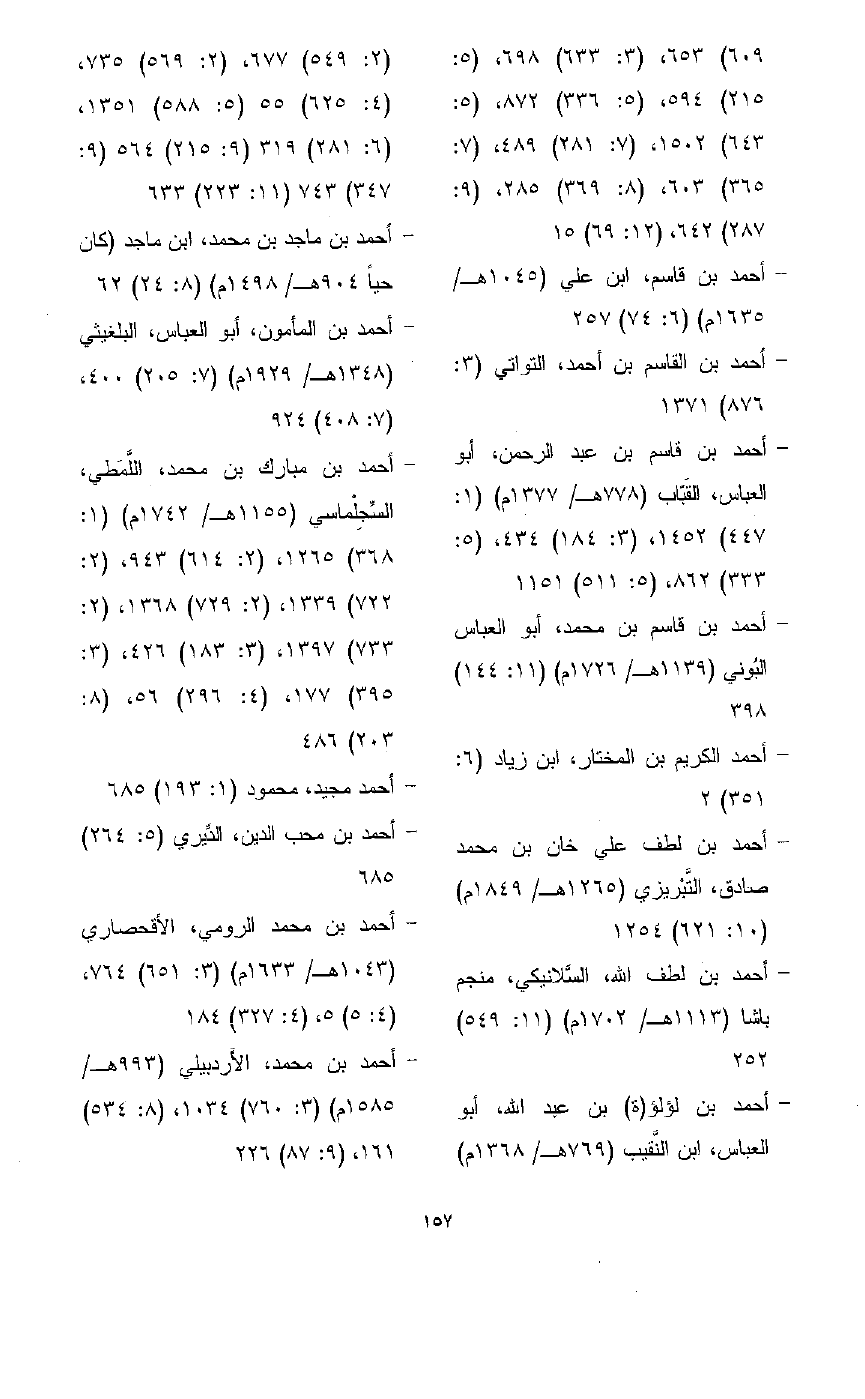 ٦٠٩) ٦٥٣، (٣: ٦٣٣) ٦٩٨، (٥:
٢١٥) ٥٩٤، (٥: ٣٣٦) ٨٧٢، (٥:
٦٤٣) ١٥٠٢، (٧: ٢٨١) ٤٨٩، (٧:
٣٦٥) ٦٠٣، (٨: ٣٦٩) ٢٨٥، (٩:
٢٨٧) ٦٤٢، (١٢: ٦٩) ١٥
- أحمد بن قاسم، ابن علي (١٠٤٥هـ/
١٦٣٥م) (٦: ٧٤) ٢٥٧
- أحمد بن القاسم بن أحمد، التواتي (٣:
٨٧٦) ١٣٧١
- أحمد بن قاسم بن عبد الرحمن، أبو
العباس، القَبّاب (٧٧٨هـ/ ١٣٧٧م) (١:
٤٤٧) ١٤٥٢، (٣: ١٨٤) ٤٣٤، (٥:
٣٣٣) ٨٦٢، (٥: ٥١١) ١١٥١
- أحمد بن قاسم بن محمد، أبو العباس
البُوني (١١٣٩هـ/ ١٧٢٦م) (١١: ١٤٤)
٣٩٨
- أحمد الكريم بن المختار، ابن زياد (٦:
٣٥١) ٢
- أحمد بن لطف علي خان بن محمد
صادق، التَّبْريزي (١٢٦٥هـ/ ١٨٤٩م)
(١٠: ٦٢١) ١٢٥٤
- أحمد بن لطف الله، السَّلانيكي، منجم
باشا (١١١٣هـ/ ١٧٠٢م) (١١: ٥٤٩)
٢٥٢
- أحمد بن لؤلؤ(ة) بن عبد الله، أبو
العباس، ابن النَّقيب (٧٦٩هـ/ ١٣٦٨م)
(٢: ٥٤٩) ٦٧٧، (٢: ٥٦٩) ٧٣٥،
(٤: ٦٢٥) ٥٥ (٥: ٥٨٨) ١٣٥١،
(٦: ٢٨١) ٣١٩ (٩: ٢١٥) ٥٦٤ (٩:
٣٤٧) ٧٤٣ (١١: ٢٢٣) ٦٣٣
- أحمد بن ماجد بن محمد، ابن ماجد (كان
حياً ٩٠٤هـ/ ١٤٩٨م) (٨: ٢٤) ٦٢
- أحمد بن المأمون، أبو العباس، البلغيثي
(١٣٤٨هـ/ ١٩٢٩م) (٧: ٢٠٥) ٤٠٠،
(٧: ٤٠٨) ٩٢٤
- أحمد بن مبارك بن محمد، اللَّمَطي،
السِّجِلْماسي (١١٥٥هـ/ ١٧٤٢م) (١:
٣٦٨) ١٢٦٥، (٢: ٦١٤) ٩٤٣، (٢:
٧٢٢) ١٣٣٩، (٢: ٧٢٩) ١٣٦٨، (٢:
٧٣٣) ١٣٩٧، (٣: ١٨٣) ٤٢٦، (٣:
٣٩٥) ١٧٧، (٤: ٢٩٦) ٥٦، (٨:
٢٠٣) ٤٨٦
- أحمد مجيد، محمود (١: ١٩٣) ٦٨٥
- أحمد بن محب الدين، النَّيري (٥: ٢٦٤)
٦٨٥
- أحمد بن محمد الرومي، الأقحصاري
(١٠٤٣هـ/ ١٦٣٣م) (٣: ٦٥١) ٧٦٤،
(٤: ٥) ٥، (٤: ٣٢٧) ١٨٤
- أحمد بن محمد، الأردبيلي (٩٩٣هـ/
١٥٨٥م) (٣: ٧٦٠) ١٠٣٤، (٨: ٥٣٤)
١٦١، (٩: ٨٧) ٢٢٦
١٥٧